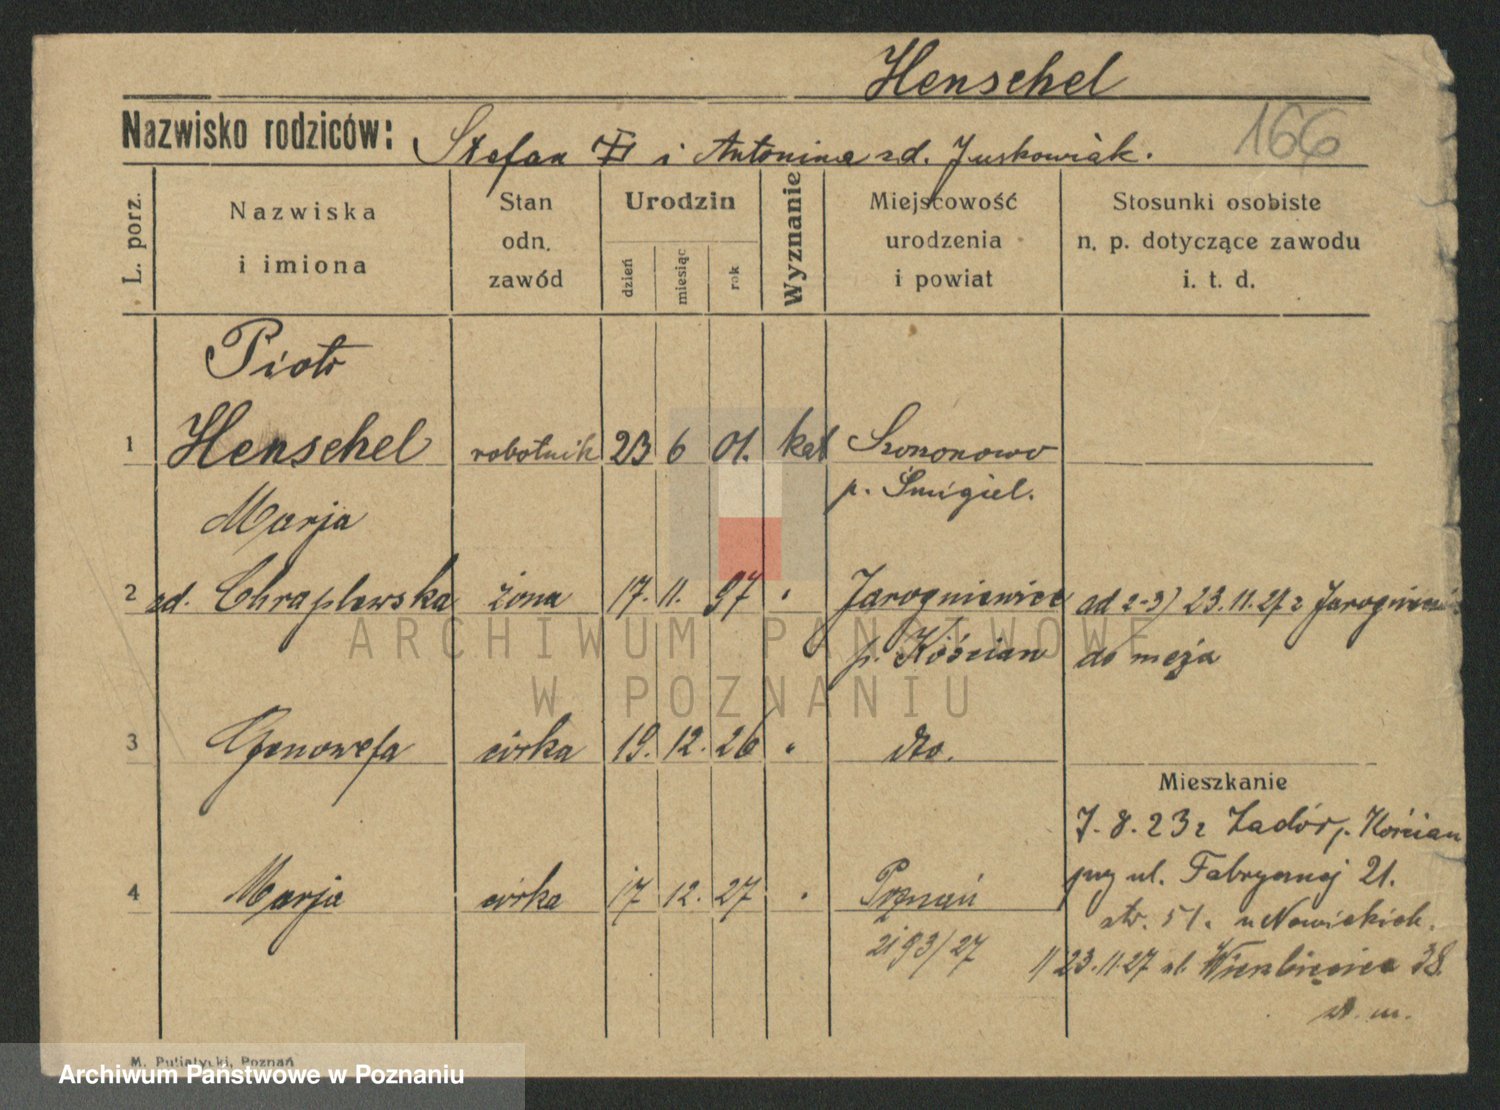 Henschel
Nazwisko rodziców: Stefan i Antonina zd. Juskowiak.
166
L. porz.
Nazwiska
i imiona
Stan
odn.
zawód
Urodzin
dzień
miesiąc
rok
Wyznanie
Miejscowość
urodzenia
i powiat
Stosunki osobiste
n. p. dotyczące zawodu
i. t. d.
Piotr
1 Henschel robotnik 23 6 01. kat
p. Śmigiel.
Marja
2 zd. Chraplewska żona 17. 11. 97 " Jarogniewice ad 2-3) 23.11.27 z Jarogniewic
p. Kościan do męża
3 Genowefa córka 19. 12. 26 " dto.
Mieszkanie
7. 8. 23 z Zadór p. Kościan
4 Marja córka 17 12. 27 " Poznań
przy ul. Fabrycznej 21.
str. 51. u Nowickich.
2193/27
1/ 23.11.27 ul. Wierzbięcice 38.
st. m.
M. Putiatycki, Poznań
ARCHIWUM PAŃSTWOWE
W POZNANIU
Archiwum Państwowe w Poznaniu